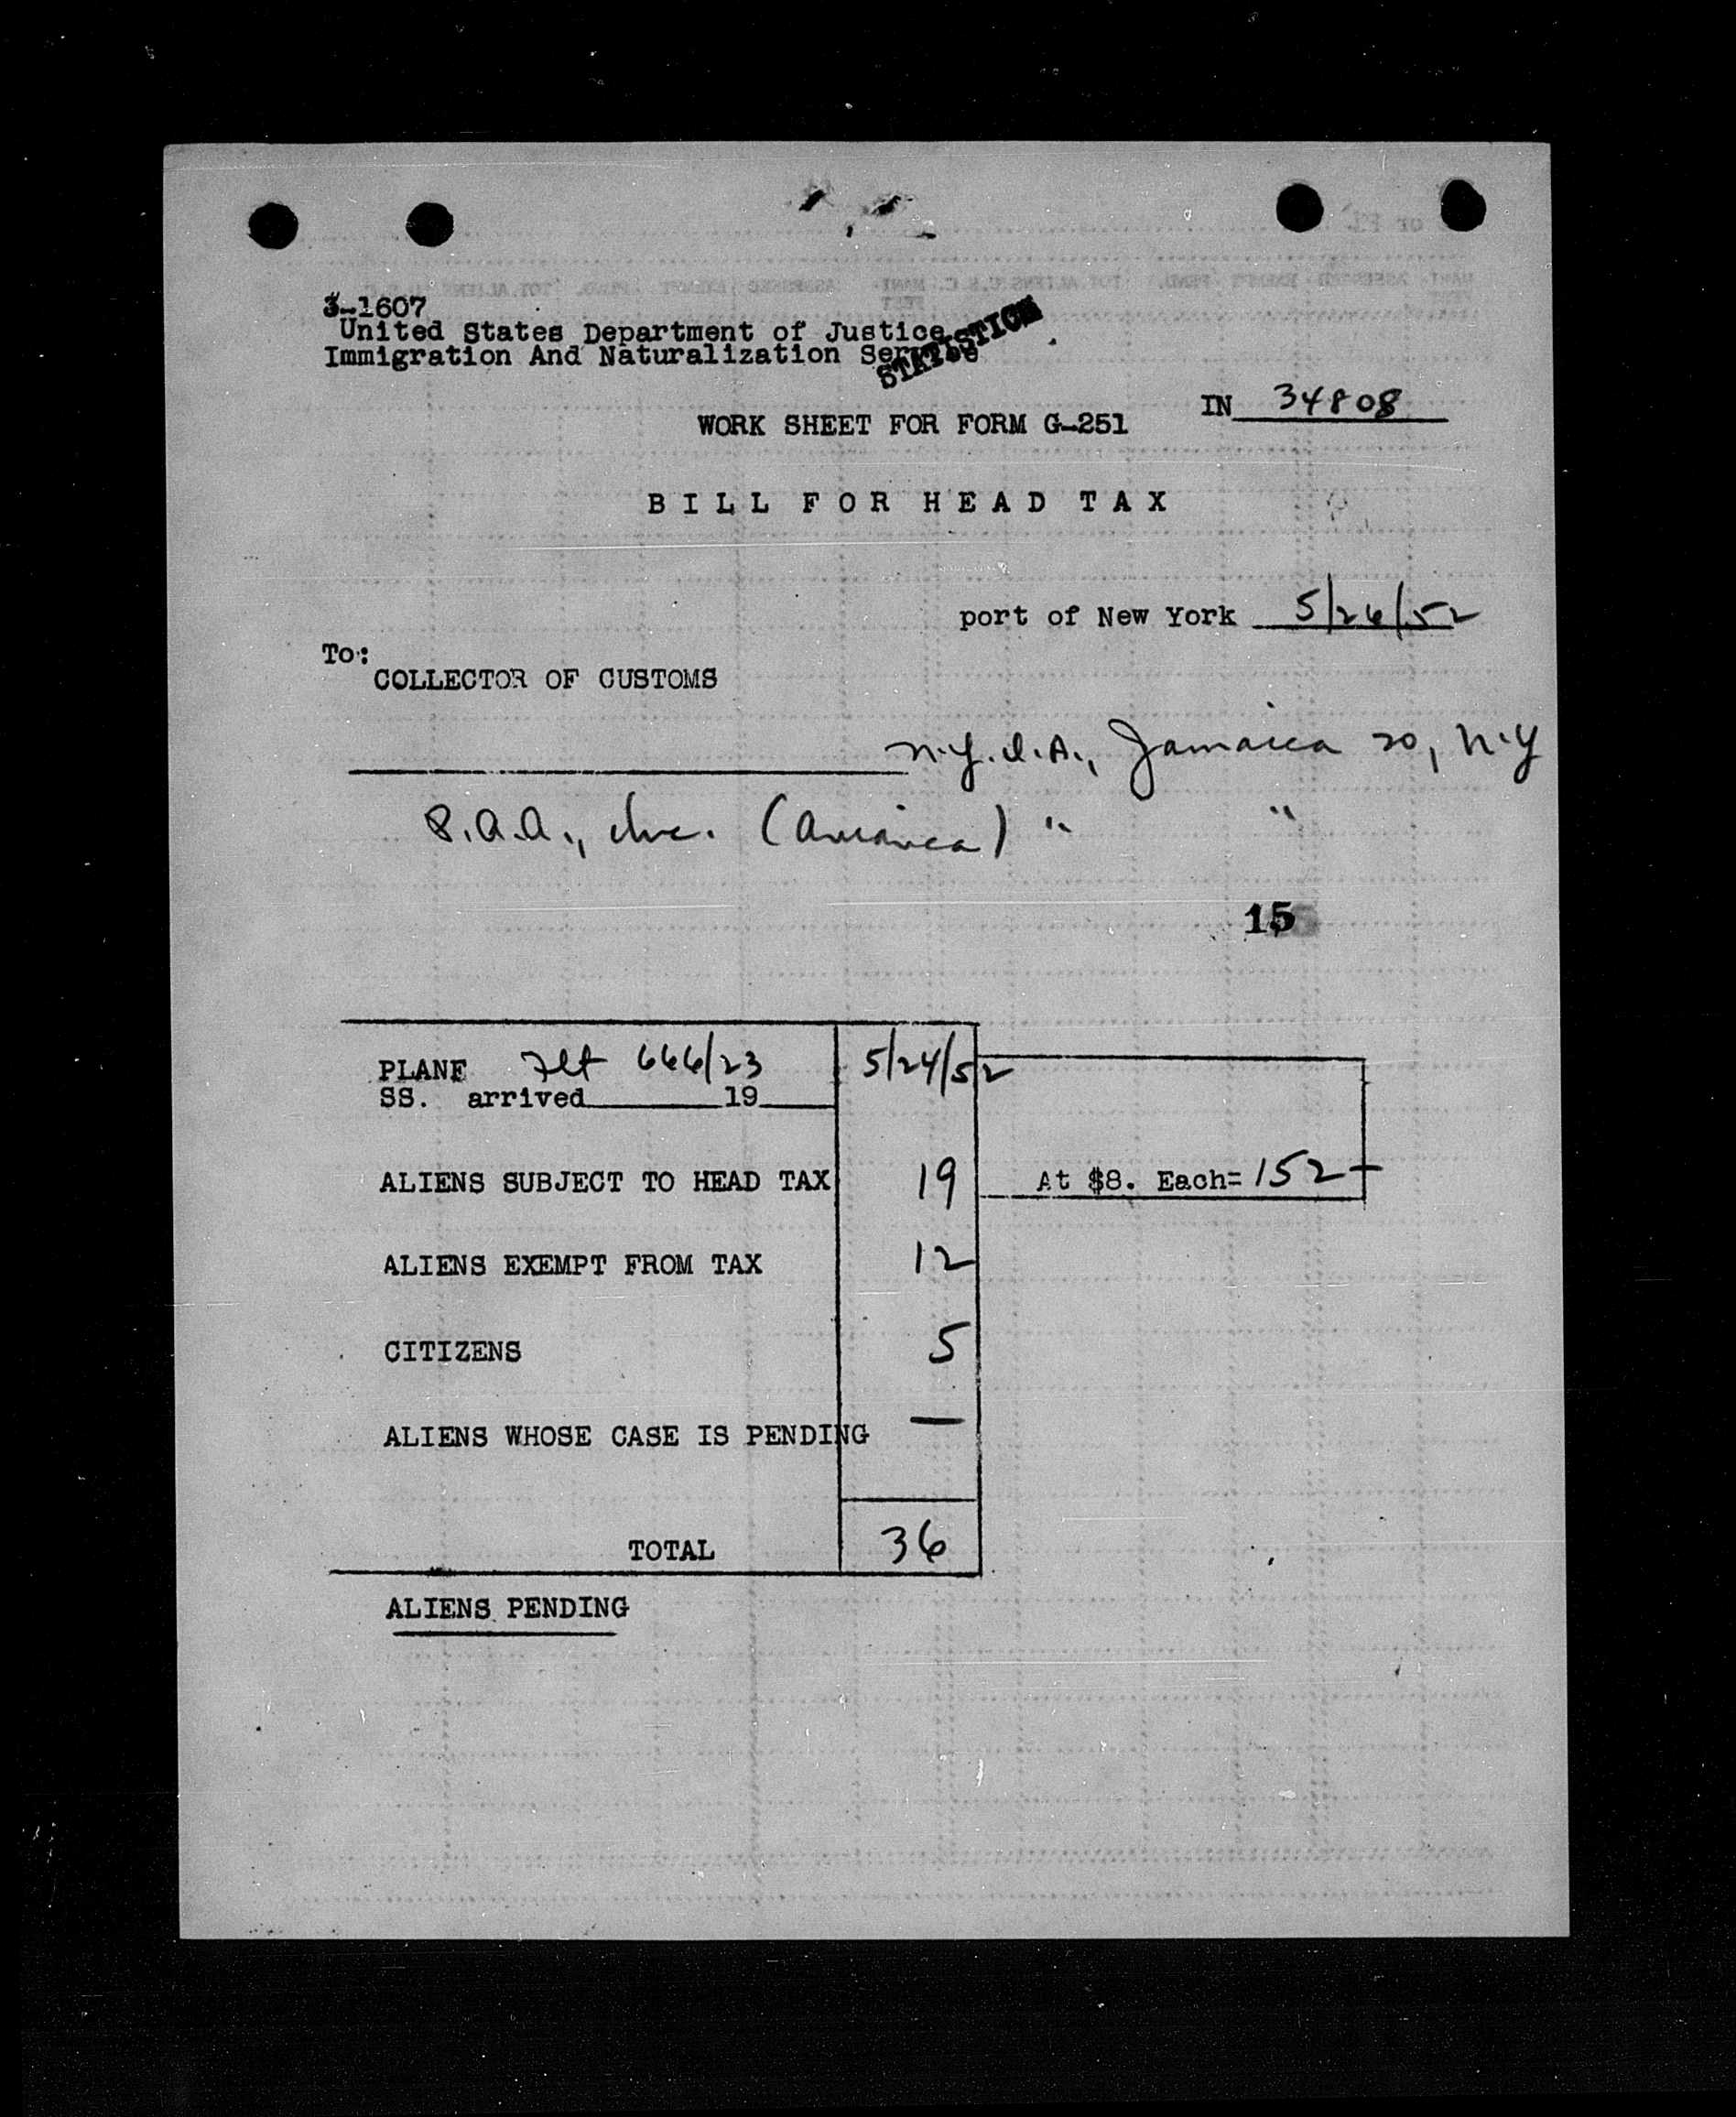 3-1607
United States Department of Justice
Immigration And Naturalization Service
STATISTICS
IN 34808
WORK SHEET FOR FORM G-251
BILL FOR HEAD TAX
port of New York 5/26/52
To:
COLLECTOR OF CUSTOMS
N.Y.I.A., Jamaica 20, N.Y
P.A.A., Inc. ( ) " "
15
PLANE Flt 666/23 5/24/52
SS. arrived 19
ALIENS SUBJECT TO HEAD TAX 19 At $8. Each= 152—
ALIENS EXEMPT FROM TAX 12
CITIZENS 5
ALIENS WHOSE CASE IS PENDING —
TOTAL 36
ALIENS PENDING